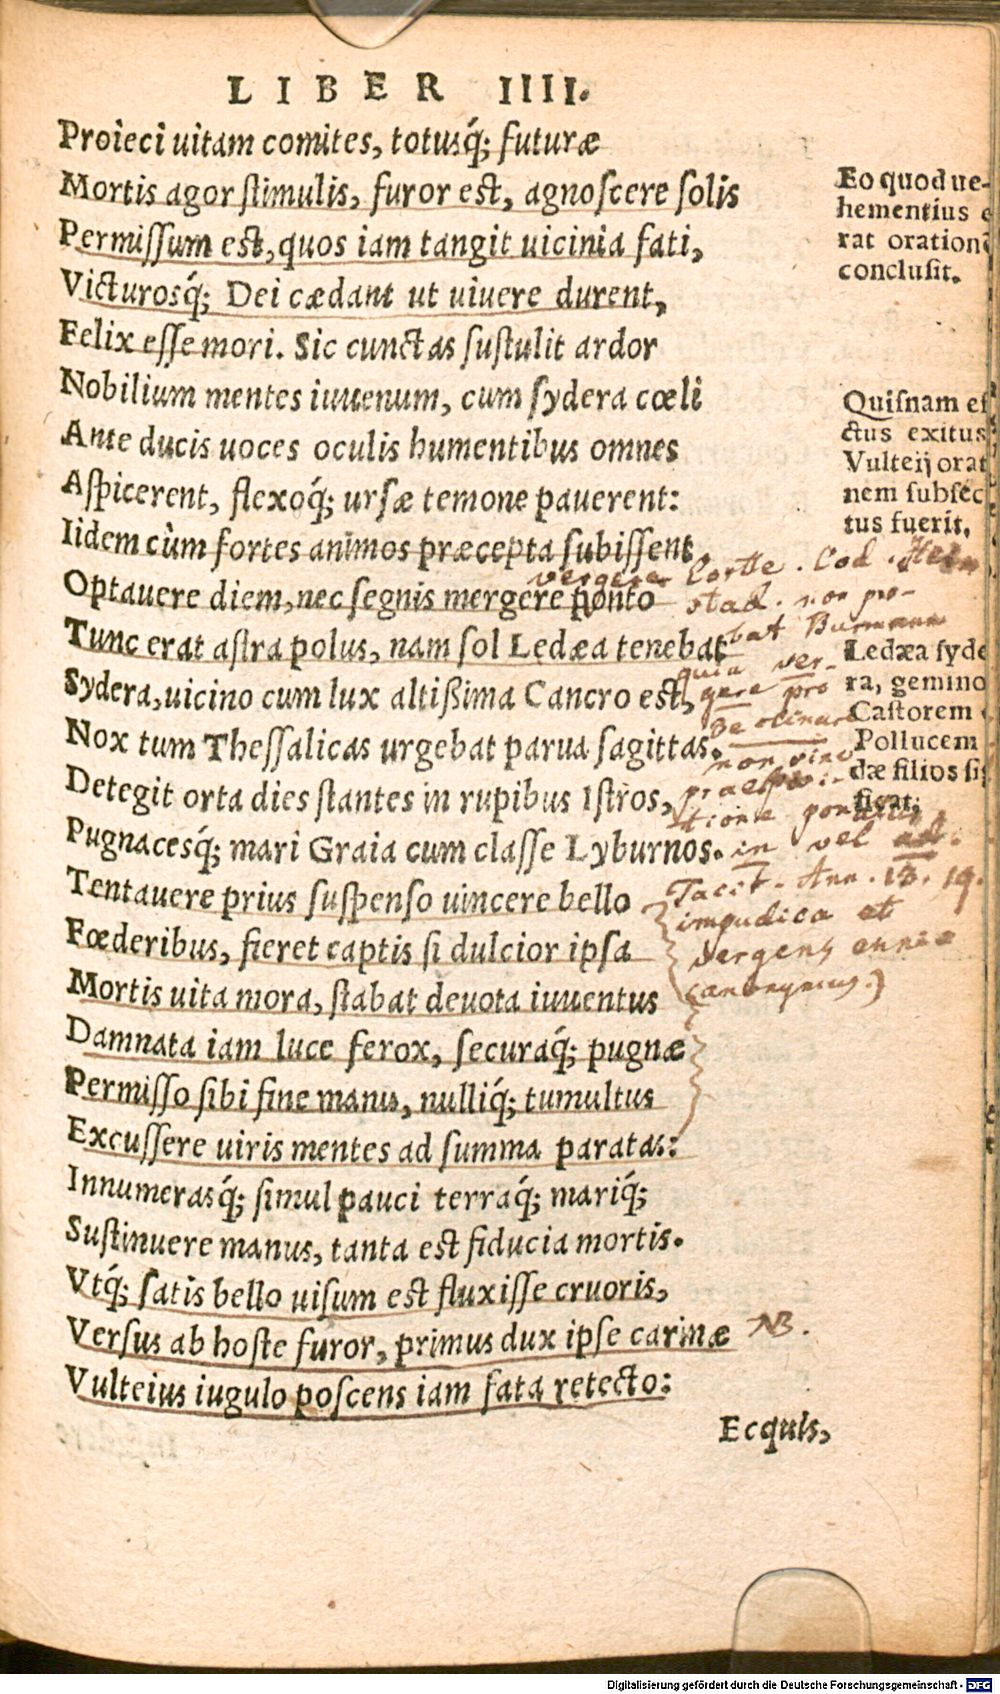 LIBER IIII.
Proieci uitam comites, totusq́; futuræ
Mortis agor stimulis, furor est, agnoscere solis
Permissum est, quos iam tangit uicinia fati,
Victurosq́; Dei cædant ut uiuere durent,
Felix esse mori. Sic cunctas sustulit ardor
Nobilium mentes iuuenum, cum sydera cœli
Ante ducis uoces oculis humentibus omnes
Aspicerent, flexoq́; ursæ temone pauerent:
Iidem cùm fortes animos præcepta subissent,
Optauere diem, nec segnis mergere ponto
Tunc erat astra polus, nam sol Ledæa tenebat
Sydera, uicino cum lux altißima Cancro est,
Nox tum Thessalicas urgebat parua sagittas.
Detegit orta dies stantes in rupibus Istros,
Pugnacesq́; mari Graia cum classe Lyburnos.
Tentauere prius suspenso uincere bello
Fœderibus, fieret captis si dulcior ipsa
Mortis uita mora, stabat deuota iuuentus
Damnata iam luce ferox, securaq́; pugnæ
Permisso sibi fine manu, nulliq́; tumultus
Excussere uiris mentes ad summa paratas:
Innumerasq́; simul pauci terraq́; mariq́;
Sustinuere manus, tanta est fiducia mortis.
Vtq́; satis bello uisum est fluxisse cruoris,
Versus ab hoste furor, primus dux ipse carinæ
Vulteius iugulo poscens iam fata retecto:
Ecquis,
Eo quod ue-
hementius e
rat oration
conclusit.
Quisnam ef
ctus exitus
Vulteij orat
nem subsec
tus fuerit.
Ledæa syde
ra, gemino
Castorem
Pollucem
dæ filios si
ficat.
vergere Cortte. Cod.
stad. non pro-
bat Burmann
quia ver-
gere pro
declinare
non sine
praepo
tione ponatur,
in vel ad.
Tacit. Ann. 13. 19.
impudica et
vergens annis
(anonymus.)
NB.
Digitalisierung gefördert durch die Deutsche Forschungsgemeinschaft - DFG